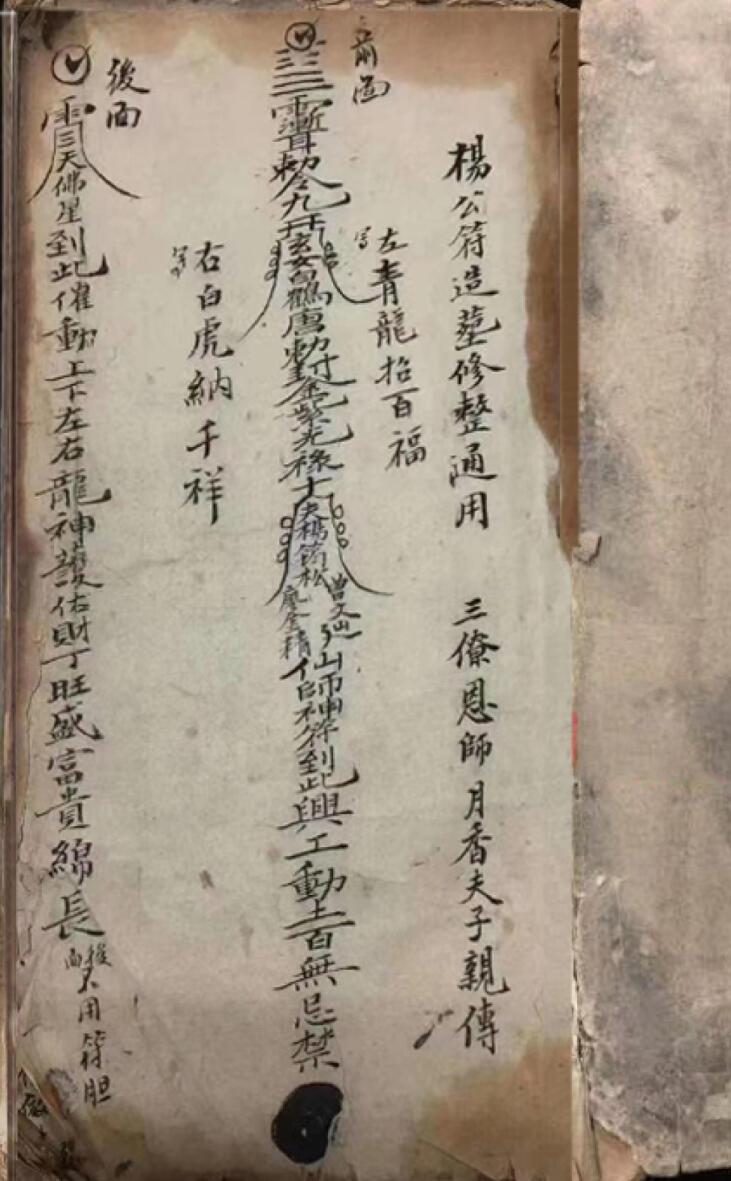 楊公符造墓修整通用 三僚恩師月香夫子親傳
前面
左青龍招百福
勅令九天玄女白鶴唐勅封金紫光祿大夫楊筠松
曾文辿
廖金精
仙師神符到此興工動土百無忌禁
右白虎納千祥
後面
三天佛星到此催動上下左右龍神護佑財丁旺盛富貴綿長
後面不用符胆